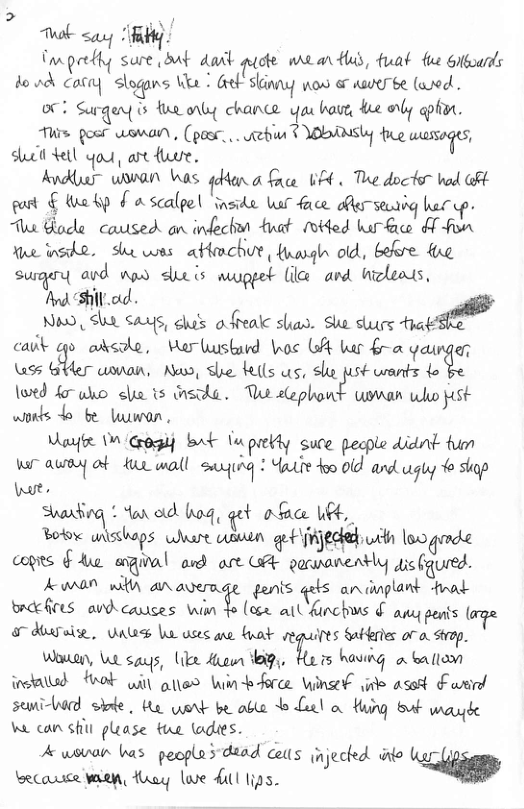 2
That say: Fatty!
im pretty sure, but don't quote me on this, that the billboards
do not carry slogans like: Get skinny now or never be loved.
or: Surgery is the only chance you have, the only option.
This poor woman. (poor...victim?) Obviously the messages,
she'll tell you, are there.
Another woman has gotten a face lift. The doctor had left
part of the tip of a scalpel inside her face after sewing her up.
The blade caused an infection that rotted her face off from
the inside. she was attractive, though old, before the
surgery and now she is muppet like and hideous.
And still old.
Now, she says, she's a freak show. She slurs that she
can't go outside. Her husband has left her for a younger,
less bitter woman. Now, she tells us, she just wants to be
loved for who she is inside. The elephant woman who just
wants to be human.
Maybe i'm crazy but i'm pretty sure people didn't turn
her away at the mall saying: You're too old and ugly to shop
here.
Shouting: You old hag, get a face lift.
Botox misshaps where women get injected with low grade
copies of the original and are left permanently disfigured.
A man with an average penis gets an implant that
backfires and causes him to lose all functions of any penis large
or otherwise. unless he uses one that requires batteries or a strap.
Women, he says, like them big. He is having a balloon
installed that will allow him to force himself into a sort of weird
semi-hard state. He wont be able to feel a thing but maybe
he can still please the ladies.
A woman has people's dead cells injected into her lips
because men, they love full lips.